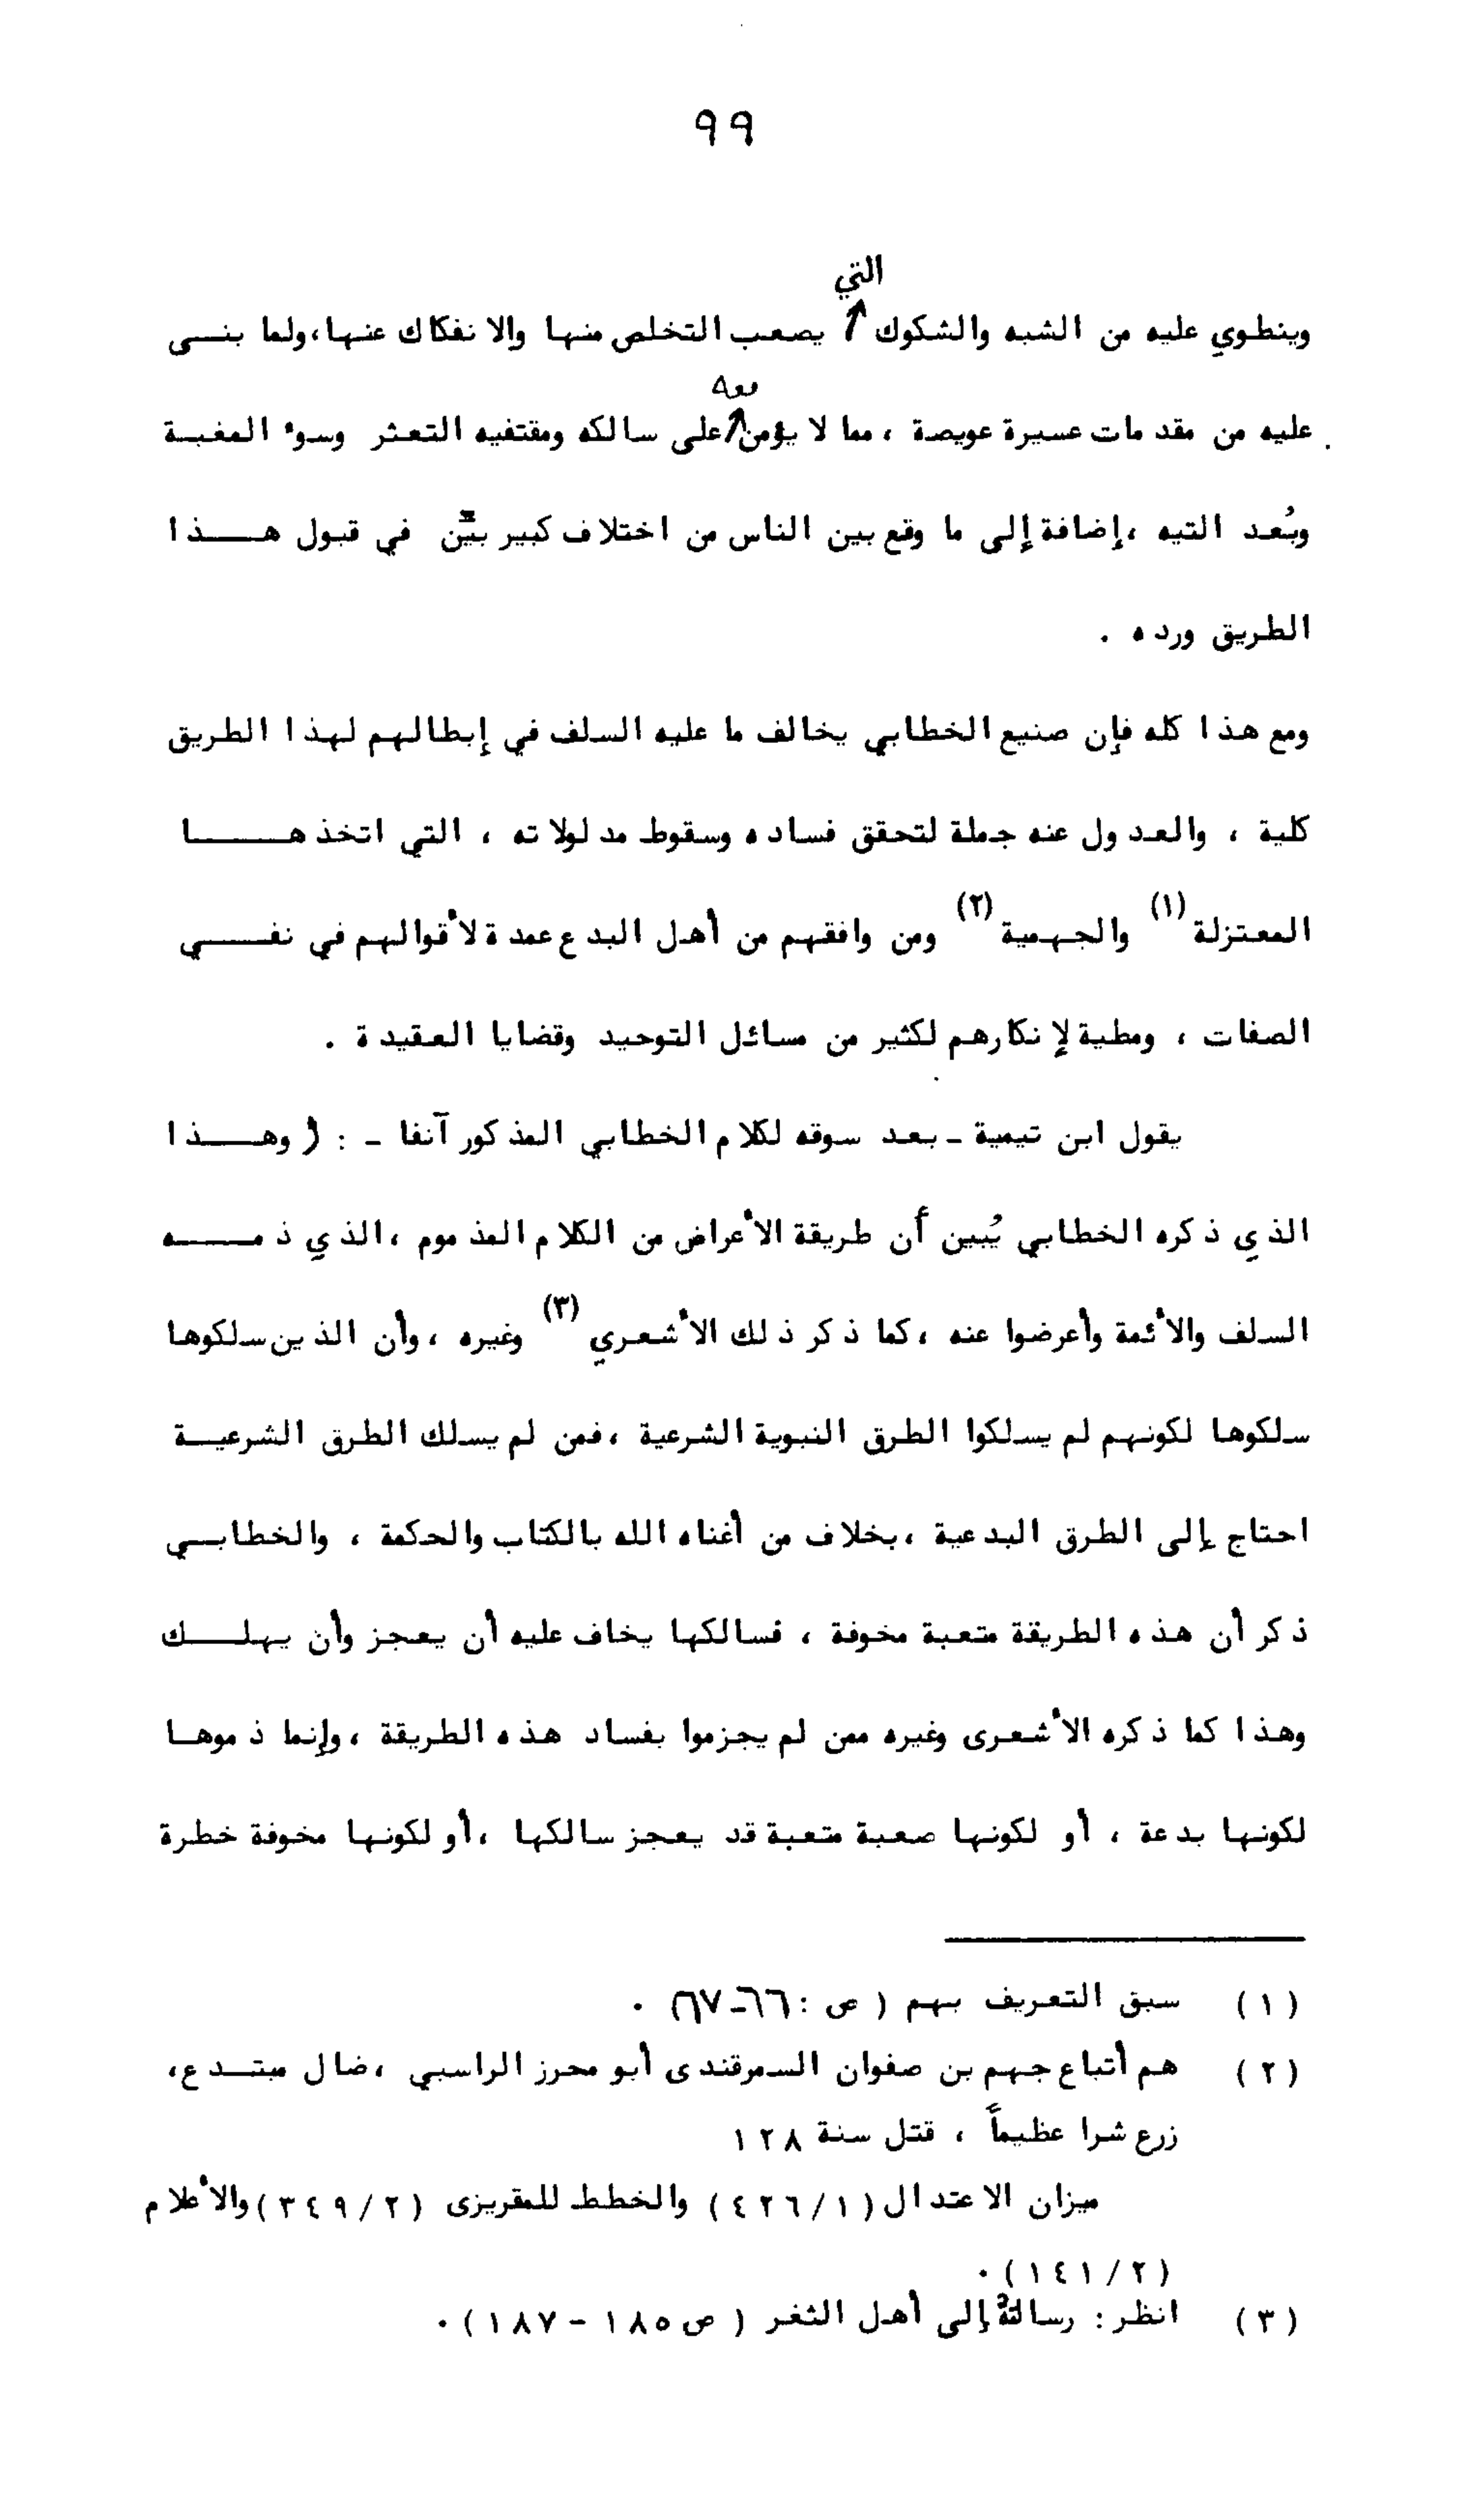 ٩٩
وينطوي عليه من الشبه والشكوك التي يصعب التخلص منها والانفكاك عنها، ولما بنى
عليه من مقدمات عسيرة عويصة ، مما لا يؤمن معه على سالكه ومقتفيه التعثر وسوء المغبة
وبُعد التيه ، إضافة إلى ما وقع بين الناس من اختلاف كبير بيّن في قبول هذا
الطريق ورده .
ومع هذا كله فإن صنيع الخطابي يخالف ما عليه السلف في إبطالهم لهذا الطريق
كلية ، والعدول عنه جملة لتحقق فساده وسقوط مدلولاته ، التي اتخذها
المعتزلة (١) والجهمية (٢) ومن وافقهم من أهل البدع عمدة لأقوالهم في نفي
الصفات ، ومطية لإنكارهم لكثير من مسائل التوحيد وقضايا العقيدة .
يقول ابن تيمية - بعد سوقه لكلام الخطابي المذكور آنفا - : ( وهذا
الذي ذكره الخطابي يُبين أن طريقة الأعراض من الكلام المذموم ، الذي ذمه
السلف والأئمة وأعرضوا عنه ، كما ذكر ذلك الأشعري (٣) وغيره ، وأن الذين سلكوها
سلكوها لكونهم لم يسلكوا الطرق النبوية الشرعية ، فمن لم يسلك الطرق الشرعية
احتاج إلى الطرق البدعية ، بخلاف من أغناه الله بالكتاب والحكمة ، والخطابي
ذكر أن هذه الطريقة متعبة مخوفة ، فسالكها يخاف عليه أن يعجز وأن يهلك
وهذا كما ذكره الأشعرى وغيره ممن لم يجزموا بفساد هذه الطريقة ، وإنما ذموها
لكونها بدعة ، أو لكونها صعبة متعبة قد يعجز سالكها ، أو لكونها مخوفة خطرة
(١) سبق التعريف بهم ( ص : ٦٦-٦٧) .
(٢) هم أتباع جهم بن صفوان السمرقندى أبو محرز الراسبي ، ضال مبتدع ،
زرع شرا عظيماً ، قتل سنة ١٢٨
ميزان الاعتدال (٤٢٦/١) والخطط للمقريزى (٣٤٩/٢) والأعلام
(١٤١/٢) .
(٣) انظر : رسالة إلى أهل الثغر ( ص ١٨٥ - ١٨٧) .